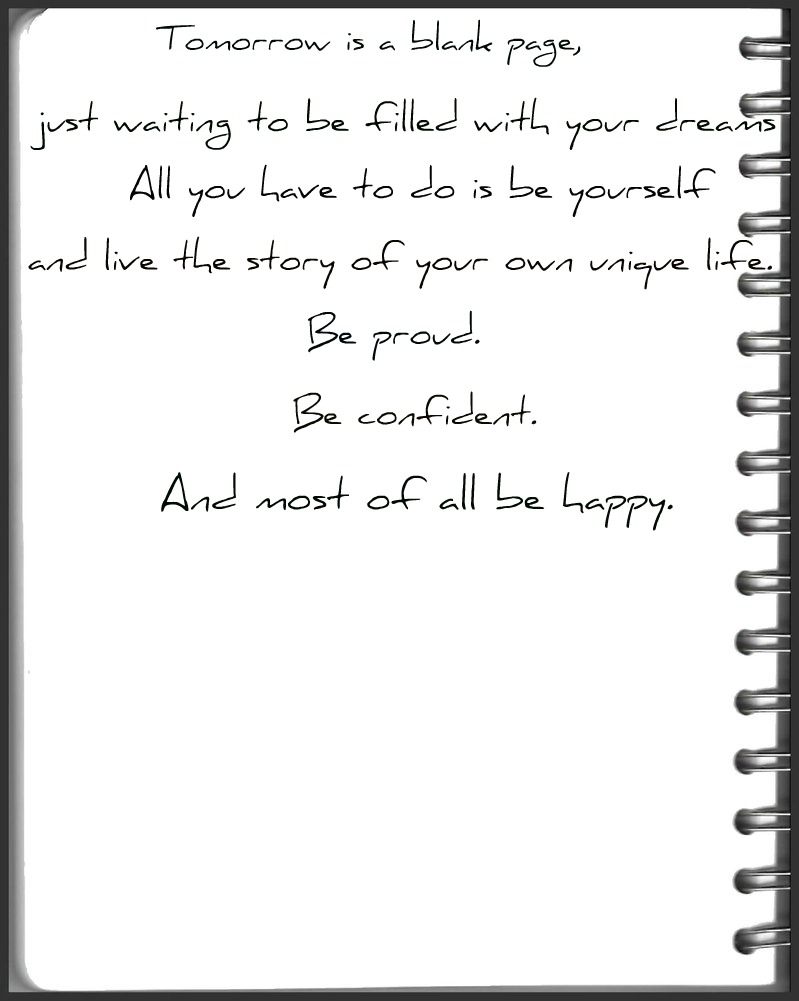 Tomorrow is a blank page,
just waiting to be filled with your dreams
All you have to do is be yourself
and live the story of your own unique life.
Be proud.
Be confident.
And most of all be happy.